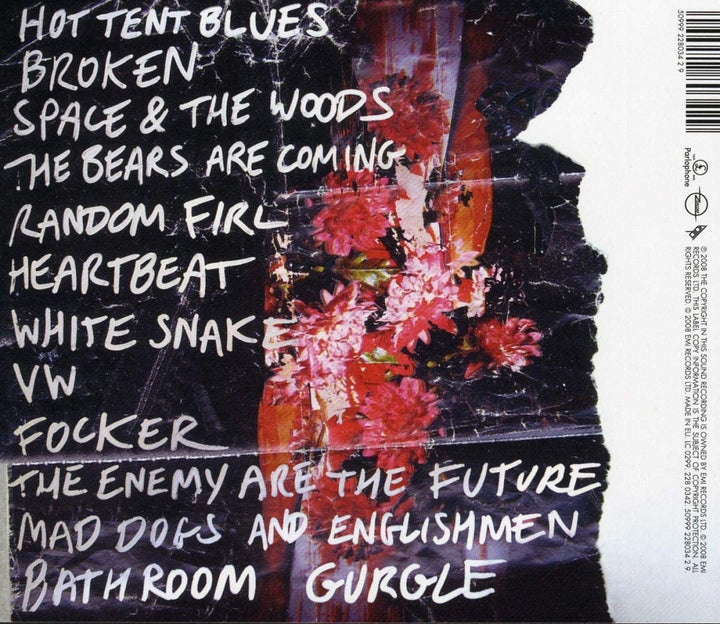 HOT TENT BLUES
BROKEN
SPACE & THE WOODS
THE BEARS ARE COMING
RANDOM FIRL
HEARTBEAT
WHITE SNAKE
VW
FOCKER
THE ENEMY ARE THE FUTURE
MAD DOGS AND ENGLISHMEN
BATHROOM GURGLE
50999 228034 2 9
Parlophone
℗ 2008 THE COPYRIGHT IN THIS SOUND RECORDING IS OWNED BY EMI RECORDS LTD. © 2008 EMI
RECORDS LTD. THIS LABEL COPY INFORMATION IS THE SUBJECT OF COPYRIGHT PROTECTION. ALL
RIGHTS RESERVED. © 2008 EMI RECORDS LTD. MADE IN EU. LC 0299. 228 0342. 50999 228034 2 9.